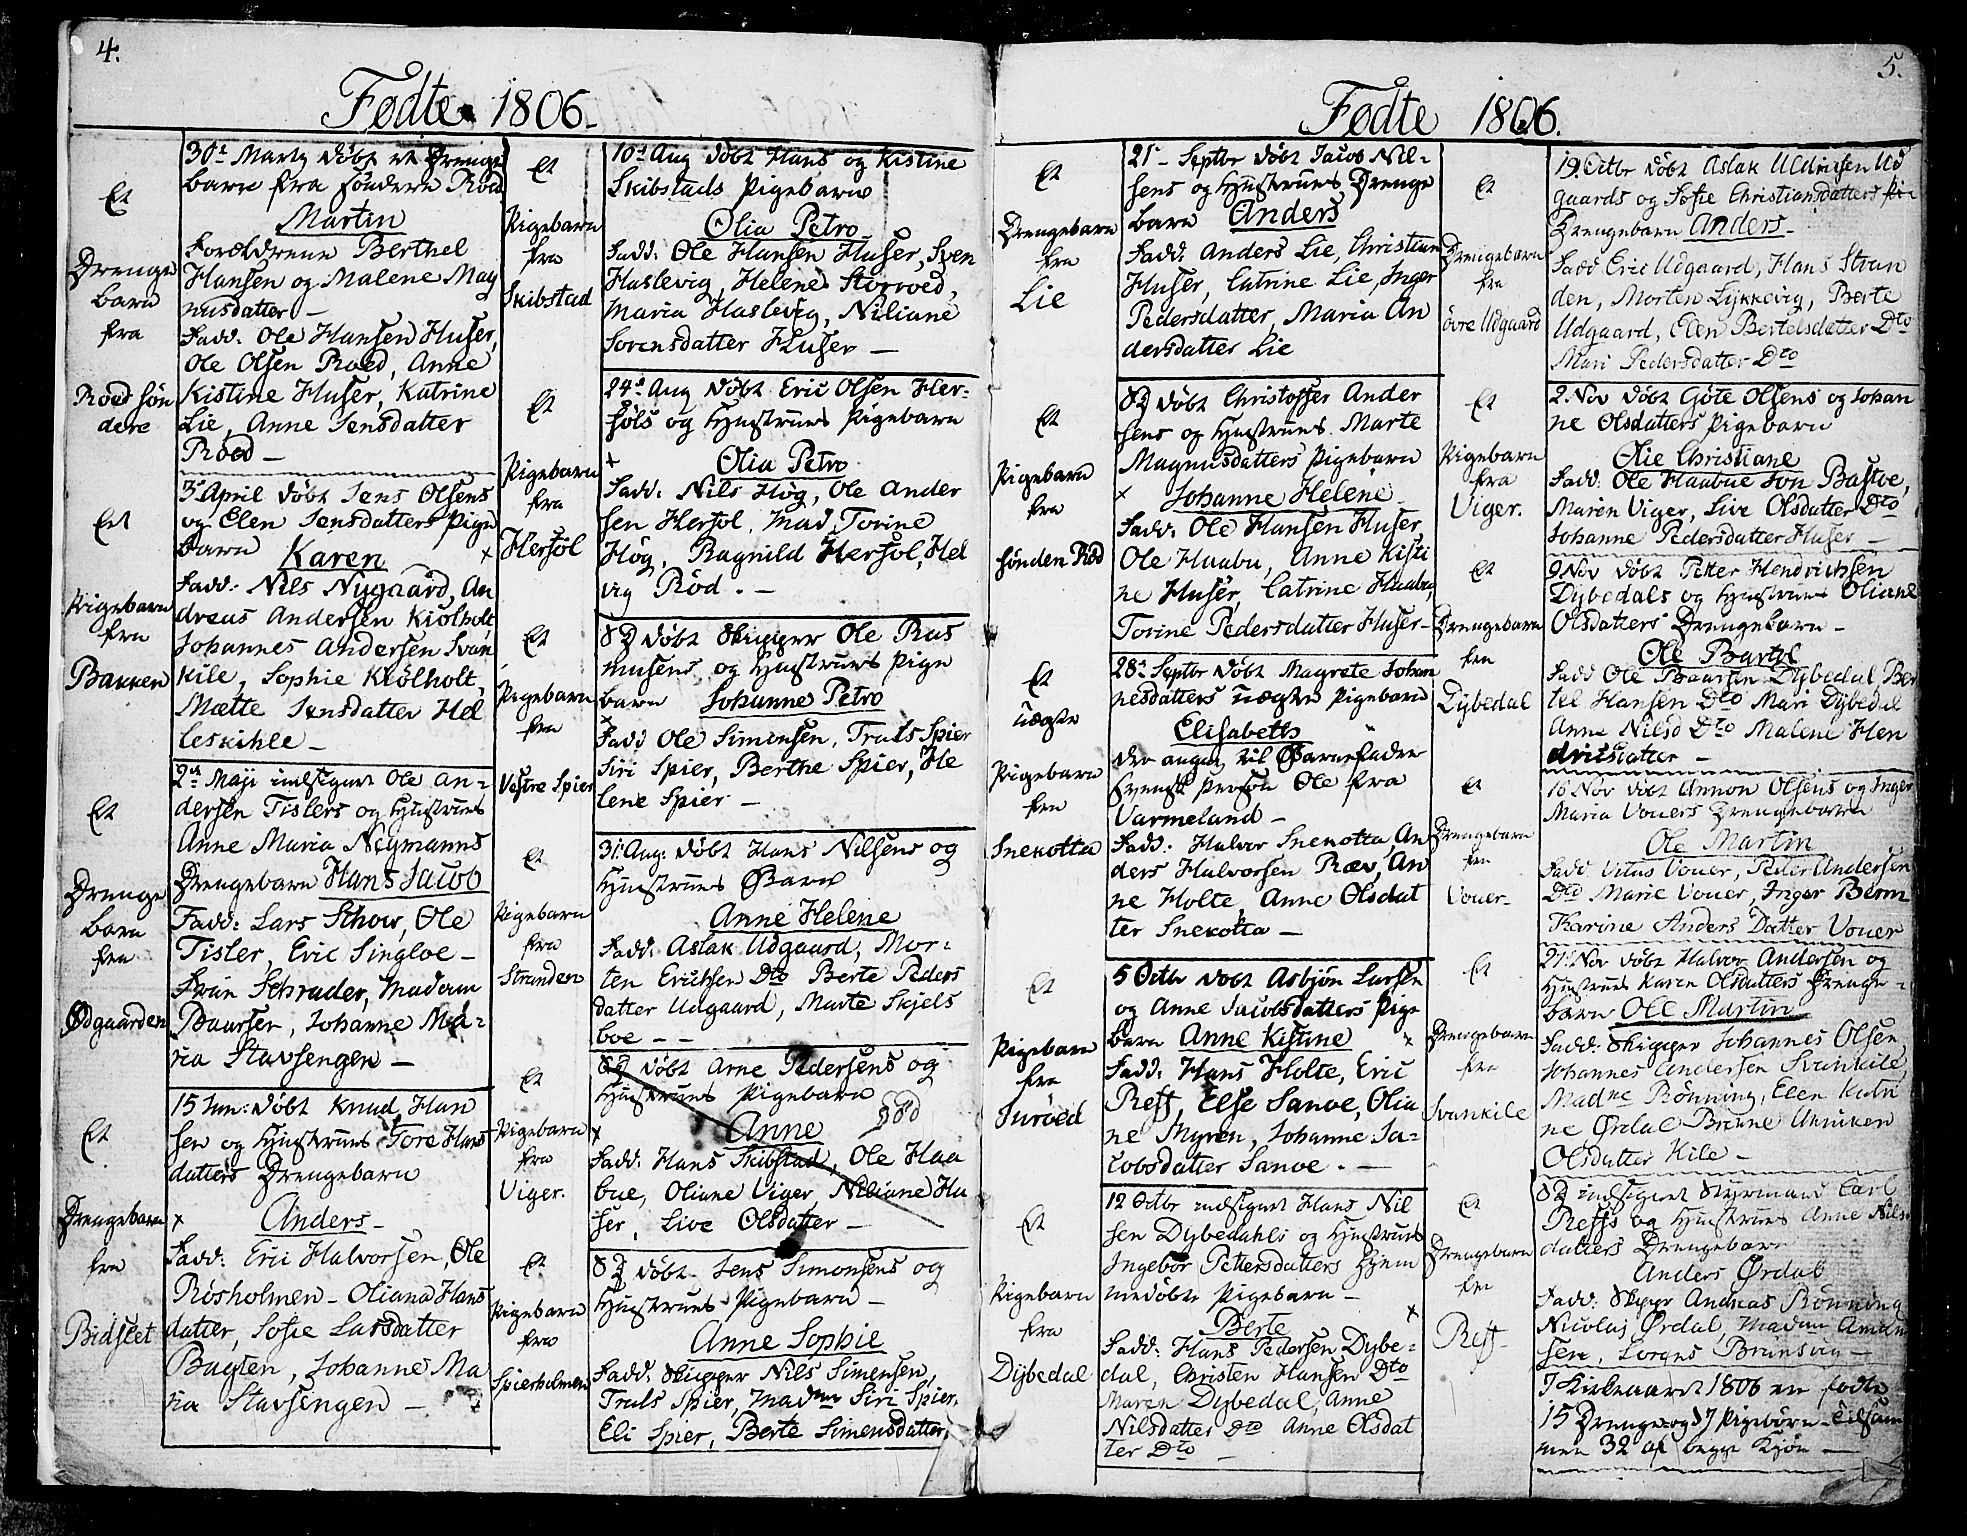 4.
Fødte 1806.
Et
Drenge
barn
fra
Roed søn
dere
30t Martz døbt et Drenge
barn fra søndere Roed
Martin
Forældrene Berthel
Hansen og Malene Mag
nusdatter –
Fadd: Ole Hansen Huser,
Ole Olsen Roed, Anne
Kistine Huser, Katrine
Lie, Anne Jensdatter
Roed –
Et
Pigebarn
fra
Bakken
3t April døbt Jens Olsens
og Elen Jensdatters Pige
barn Karen
Fadd: Nils Nygaard, An
dreas Andersen Kiølholt,
Johannes Andersen Svan
kile, Sophie Kiølholt,
Mætte Jensdatter Hel
leskihle –
Et
Drenge
barn
fra
Ødgaarden
2den Maji indsignet Ole An-
dersen Tislers og Hustrues
Anne Maria Nymanns
Drengebarn Hans Jacob
Fadd: Lars Schow, Ole
Tisler, Eric Singloe –
Frun Schrader, Madam
Paursen, Johanne Ma-
ria Stavsengen –
Et
Drengebarn
fra
Bidsleet
15 Jun: døbt Knud Han
sen og Hustrues Tore Hans
datters Drengebarn
Anders –
Fadd: Eric Halvorsen, Ole
Røsholmen – Oliana Hans
datter, Sofie Larsdatter
Bugten, Johanne Ma
ria Stavsengen –
Et
Pigebarn
fra
Skibstad
10t Aug døbt Hans og Kistine
Skibstads Pigebarn
Olia Petro –
Fadd: Ole Hansen Huser, Sven
Haslevig, Helene Storroed,
Maria Haslevig, Niliane
Sorensdatter Huser –
Et
Pigebarn
fra
Hersøl
24t Aug døbt Eric Olsen Her-
søls og Hustrues Pigebarn
Olia Petro
Fadd: Nils Høg, Ole Ander
sen Hersøl, Mad. Torine
Høg, Ragnild Hersøl, Hel
vig Rød. –
Et
Pigebarn
fra
Vestre Spier
døbt Skipper Ole Ras
musens og Hustrues Pige
barn Johanne Petro
Fadd Ole Simonsen, Truls Spier
Siri Spier, Berthe Spier, He
lene Spier –
Et
Pigebarn
fra
Stranden
31: Aug: døbt Hans Nilsens og
Hustrues Barn
Anne Helene
Fadd: Aslak Udgaard, Mor-
ten Erichsen Dto Berte Peders
datter Udgaard, Marte Skjels
boe – –
Et
Pigebarn
fra
Viger.
døbt Arne Pedersens og
Hustrues Pigebarn
Anne død
Fadd: Hans Skibstad, Ole Haa
bue, Oliane Viger, Niliane Hu
ser, Live Olsdatter –
Et
Pigebarn
fra
Spierholmen
døbt Jens Simonsens og
Hustrues Pigebarn –
Anne Sophie
Fadd: Skipper Nils Simensen,
Truls Spier, Madm Siri Spier,
Eli Spier, Berte Simensdatter,
5.
Fødte 1806.
Et
Drengebarn
fra
Lie
21– Septbr døbt Jacob Nil-
sens og Hustrues Drenge
barn Anders
Fadd: Anders Lie, Christian
Huser, Catrine Lie, Inger
Pedersdatter, Maria An
dersdatter Lie
Et
Pigebarn
fra
sønden Rød
døbt Christoffer Ander
sens og Hustrues Marte
Magnusdatters Pigebarn
Johanne Helene –
Fadd: Ole Hansen Huser,
Ole Haabu, Anne Kisti
ne Huser, Catrine Haabu,
Torine Pedersdatter Huser –
Et
uægte
Pigebarn
fra
Snekotta
28t Septbr døbt Magrete Johan
nesdatters uægte Pigebarn
Elisabeth
der angav til Barnefader
Svensk Person Ole fra
Varmeland –
Fadd: Halvor Snekotta, An
ders Halvorsen Ræv, An
ne Holte, Anne Olsdat
ter Snekotta –
Et
Pigebarn
fra
Turöed
5 Octbr døbt Asbjøn Larsen
og Anne Jacobsdatters Pige
barn Anne Kistine
Fadd: Hans Holte, Eric
Reff, Else Sanoe, Olia
ne Myren, Johanne Ja-
cobsdatter Sanoe. –
Et
Pigebarn
fra
Dybedal
12 Octbr indsignet Hans Nil
sen Dybedahls og Hustrues
Ingebor Pettersdatters Hjem
medøbte Pigebarn –
Berte
Fadd: Hans Pedersen Dybe-
dal, Christen Hansen Dto
Maren Dybedal, Anne
Nilsdatter Dto Anne Olsdat
ter Dto –
Et
Drengebarn
fra
övre Udgaard
19 Octbr døbt Aslak Ud
gaards og Sofie Christiansdatters
Drengebarn Anders –
Fadd Eric Udgaard, Hans Stran
den, Morten Lykkevig, Berte
Udgaard, Elen Bertelsdatter Dto
Mari Pedersdatter Dto
Et
Pigebarn
fra
Viger.
2. Nov døbt Göte Olsens og Johan
ne Olsdatters Pigebarn
Olie Christiane
Fadd: Ole Haabue Jon Bastoe,
Maren Viger, Live Olsdatter Dto
Johanne Pedersdatter Huser –
Et
Drengebarn
fra
Dybedal
9 Nov døbt Petter Hendrichsen
Dybedals og Hustrues Oliane
Olsdatters Drengebarn –
Ole Bartel
Fadd Ole Paarsen Dybedal Ber
tel Hansen Dto Mari Dybedal
Anne Nilsd Dto Malene Hen
dricsdatter –
Et
Drengebarn
fra
Vouer
16 Nov døbt Annon Olsens og Inger
Maria Vouers Drengebarn
Ole Martin
Fadd Vitus Vouer, Peder Andersen
Dto Marie Vouer, Inger Berm
Karine Anders Datter Vouer
Et
Drengebarn
fra
Svankile
21 Nov døbt Halvor Andersen og
Hustrues Karen Olsdatters Drenge-
barn Ole Martin
Fadd: Skipper Johannes Olsen
Johannes Andersen Svankile,
Madme Rönning, Elen Katri
ne Ørdal Brune Anniken
Olsdatter Kile –
Et
Drengebarn
fra
Reff –
indsignet Styrmand Carl
Reffs og Hustrues Anne Nils
datters Drengebarn
Anders Ørdal
Fadd: Skipper Andreas Rönning
Nicolaj Ørdal Madam Amun
sen, Lorens Brunsvig –
I Kirkeaaret 1806 er fødte
15 Drenge og 17 Pigebørn – Tilsam
men 32 af begge Kjøn –